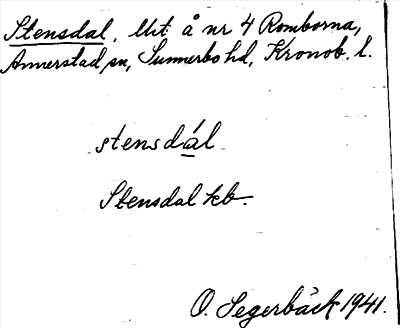 Stensdal, Urt å nr 4 Romborna,
Annerstad sn, Sunnerbo hd, Kronob. l.
stensdál
Stensdal kb.
O. Segerbäck 1941.